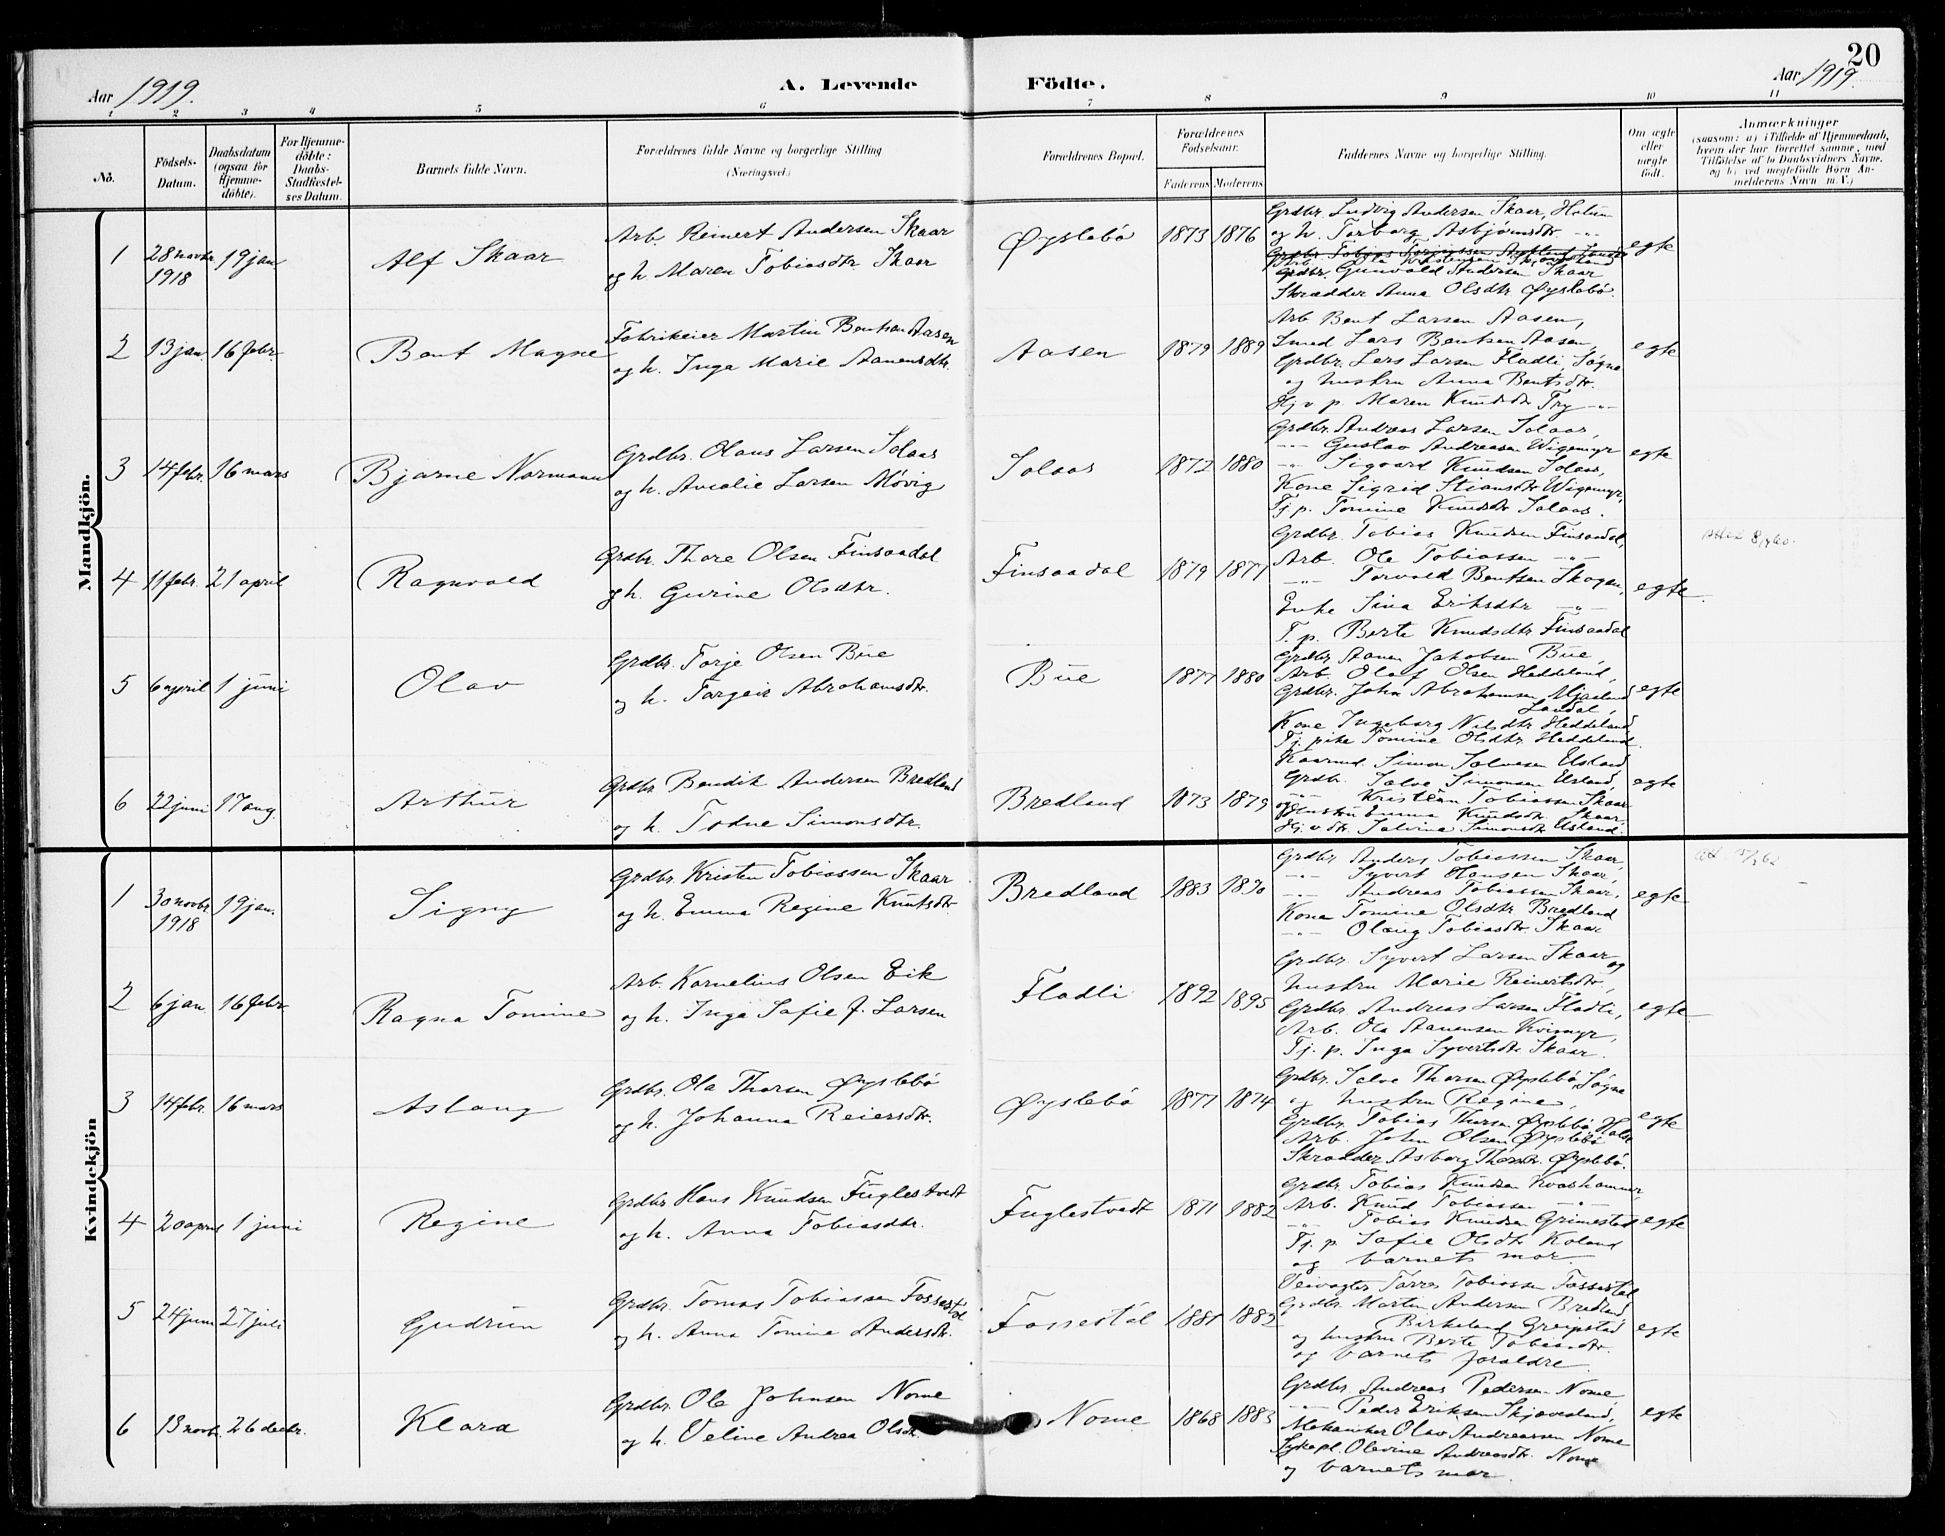 20
Aar 1919. A. Levende Födte. Aar 1919.
1 2 3 4 5 6 7 8 9 10 11
No. Födsels-Datum. Daabsdatum (ogsaa for Hjemme-döbte). For Hjemme-döbte: Daabs-Stadfæstel-ses Datum. Barnets fulde Navn. Forældrenes fulde Navne og borgerlige Stilling (Næringsvei.) Forældrenes Bopæl. Forældrenes Födselsaar. Faderens Moderens Faddernes Navne og borgerlige Stilling. Om ægte eller uægte födt. Anmærkninger (saasom: a) i Tilfælde af Hjemmedaab, hvem der har forrettet samme, med Tilföielse af to Daabsvidners Navne, og b) ved uægtefödte Börn An-melderens Navn m. V.)
Mandkjön.
1 28 novbr. 1918 19 jan Alf Skaar
Arb. Reinert Andersen Skaar
og h. Maren Tobiasdtr Skaar
Øyslebö 1873 1876
Grdbr. Ludvig Andersen Skaar, Holum
og h. Torborg Asbjörnsdtr. -"-
Grdbr. Gunvald Andersen Skaar
Skrædder Anna Olsdtr Øyslebö.
egte
2 13 jan. 16 febr. Bent Magne
Fabrikeier Martin Bentsen Aasen
og h. Inga Marie Aanensdtr.
Aasen 1879 1889
Arb Bent Larsen Aasen,
Smed Lars Bentsen Aasen,
Grdbr. Lars Larsen Fladli, Søgne
og hustru Anna Bentsdtr.
Hj v p. Maren Knudsdtr Try -"-
egte
3 14 febr. 16 mars Bjarne Normann
Grdbr. Olaus Larsen Solaas
og h. Amalie Larsen Møvig
Solaas 1872 1880
Grdbr. Andreas Larsen Solaas,
-"- Gustav Andreasen Wigemyr
-"- Sigvard Knudsen Solaas,
Kone Sigrid Stiansdtr Wigemyr,
Tj. p. Tomine Knudsdtr Solaas.
egte
4 11 febr. 21 april Ragnvald
Grdbr. Thore Olsen Finsaadal
og h. Gurine Olsdtr.
Finsaadal 1879 1877
Grdbr. Tobias Knudsen Finsaadal,
Arb. Ole Tobiassen -"-
-"- Torvald Bentsen Skogen,
Enke Sina Eriksdtr -"-
T. p. Berte Knudsdtr Finsaadal
egte.
5 6 april 1 juni Olav
Grdbr. Torje Olsen Bue
og h. Torgeir Abrahamsdtr.
Bue 1877 1880
Grdbr Aanen Jakobsen Bue,
Arb. Olaf Olsen Heddeland,
Grdbr. John Abrahamsen Mjaaland,
Laudal,
Kone Ingeborg Nilsdtr Heddeland
Tj. pike Tomine Olsdtr Heddeland.
egte
6 22 juni 17 aug. Arthur
Grdbr. Bendik Andersen Bredland
og h. Todne Simonsdtr.
Bredland 1873 1879
Kaarmd. Simon Salvesen Usland
Grdbr. Salve Simonsen Usland,
-"- Kristen Tobiassen Skaar
og hustru Emma Knudsdtr. Skaar,
Hj. v dtr. Salvine Simonsdtr Usland.
egte
Kvindekjön
1 30 novbr. 1918 19 jan. Signy
Grdbr. Kristen Tobiassen Skaar
og h. Emma Regine Knutsdtr
Bredland 1883 1890
Grdbr Anders Tobiassen Skaar,
-"- Syvert Hansen Skaar,
-"- Andreas Tobiassen Skaar,
Kone Tomine Olsdtr Bredland
-"- Olaug Tobiasdtr. Skaar
egte
2 6 jan. 16 febr. Ragna Tomine
Arb. Kornelius Olsen Eik
og h. Inga Sofie f. Larsen
Fladli 1892 1895
Grdbr Syvert Larsen Skaar og
hustru Marie Reinertsdtr,
Grdbr. Andreas Larsen Fladli,
Arb. Ola Aanensen Kvismyr,
Tj. p. Inga Syvertsdtr Skaar.
egte
3 14 febr. 16 mars Aslaug
Grdbr. Ola Thorsen Øyslebö
og h. Johanna Reiersdtr.
Øyslebö 1877 1874
Grdbr. Salve Thorsen Øyslebö, Søgne
og hustru Regine,
Grdbr. Tobias Thorsen Øyslebö, Halse
Arb. John Olsen Øyslebö
Skrædder Asborg Thorsdtr. Øyslebö.
egte
4 20 april 1 juni Regine
Grdbr Hans Knudsen Fuglestvedt
og h. Anna Tobiasdtr.
Fuglestvedt 1871 1882
Grdbr. Tobias Knudsen Kvashammer,
Arb. Knud Tobiassen -"-
-"- Tobias Knudsen Grimestad
Tj. p. Sofie Olsdtr Koland
og barnets mor
egte
5 24 juni 27 juli Gudrun
Grdbr. Tomas Tobiassen Fossestöl
og h. Anna Tomine Andersdtr.
Fossestöl 1881 1882
Veivogter Tørres Tobiassen Fossestöl
Grdbr. Martin Andersen Bredland,
Birkeland Greipstad
og hustru Berte Tobiasdtr.
og barnets foraldre
egte
6 13 novb. 26 decbr. Klara
Grdbr. Ole Johnsen Nome
og h. Veline Andrea Olsdtr
Nome 1868 1883
Grdbr Andreas Pedersen Nome
-"- Peder Eriksen Skjævesland,
Mekaniker Olav Andreassen Nome
Sykepl. Olevine Andreasdtr. Nome
og barnets mor.
egte